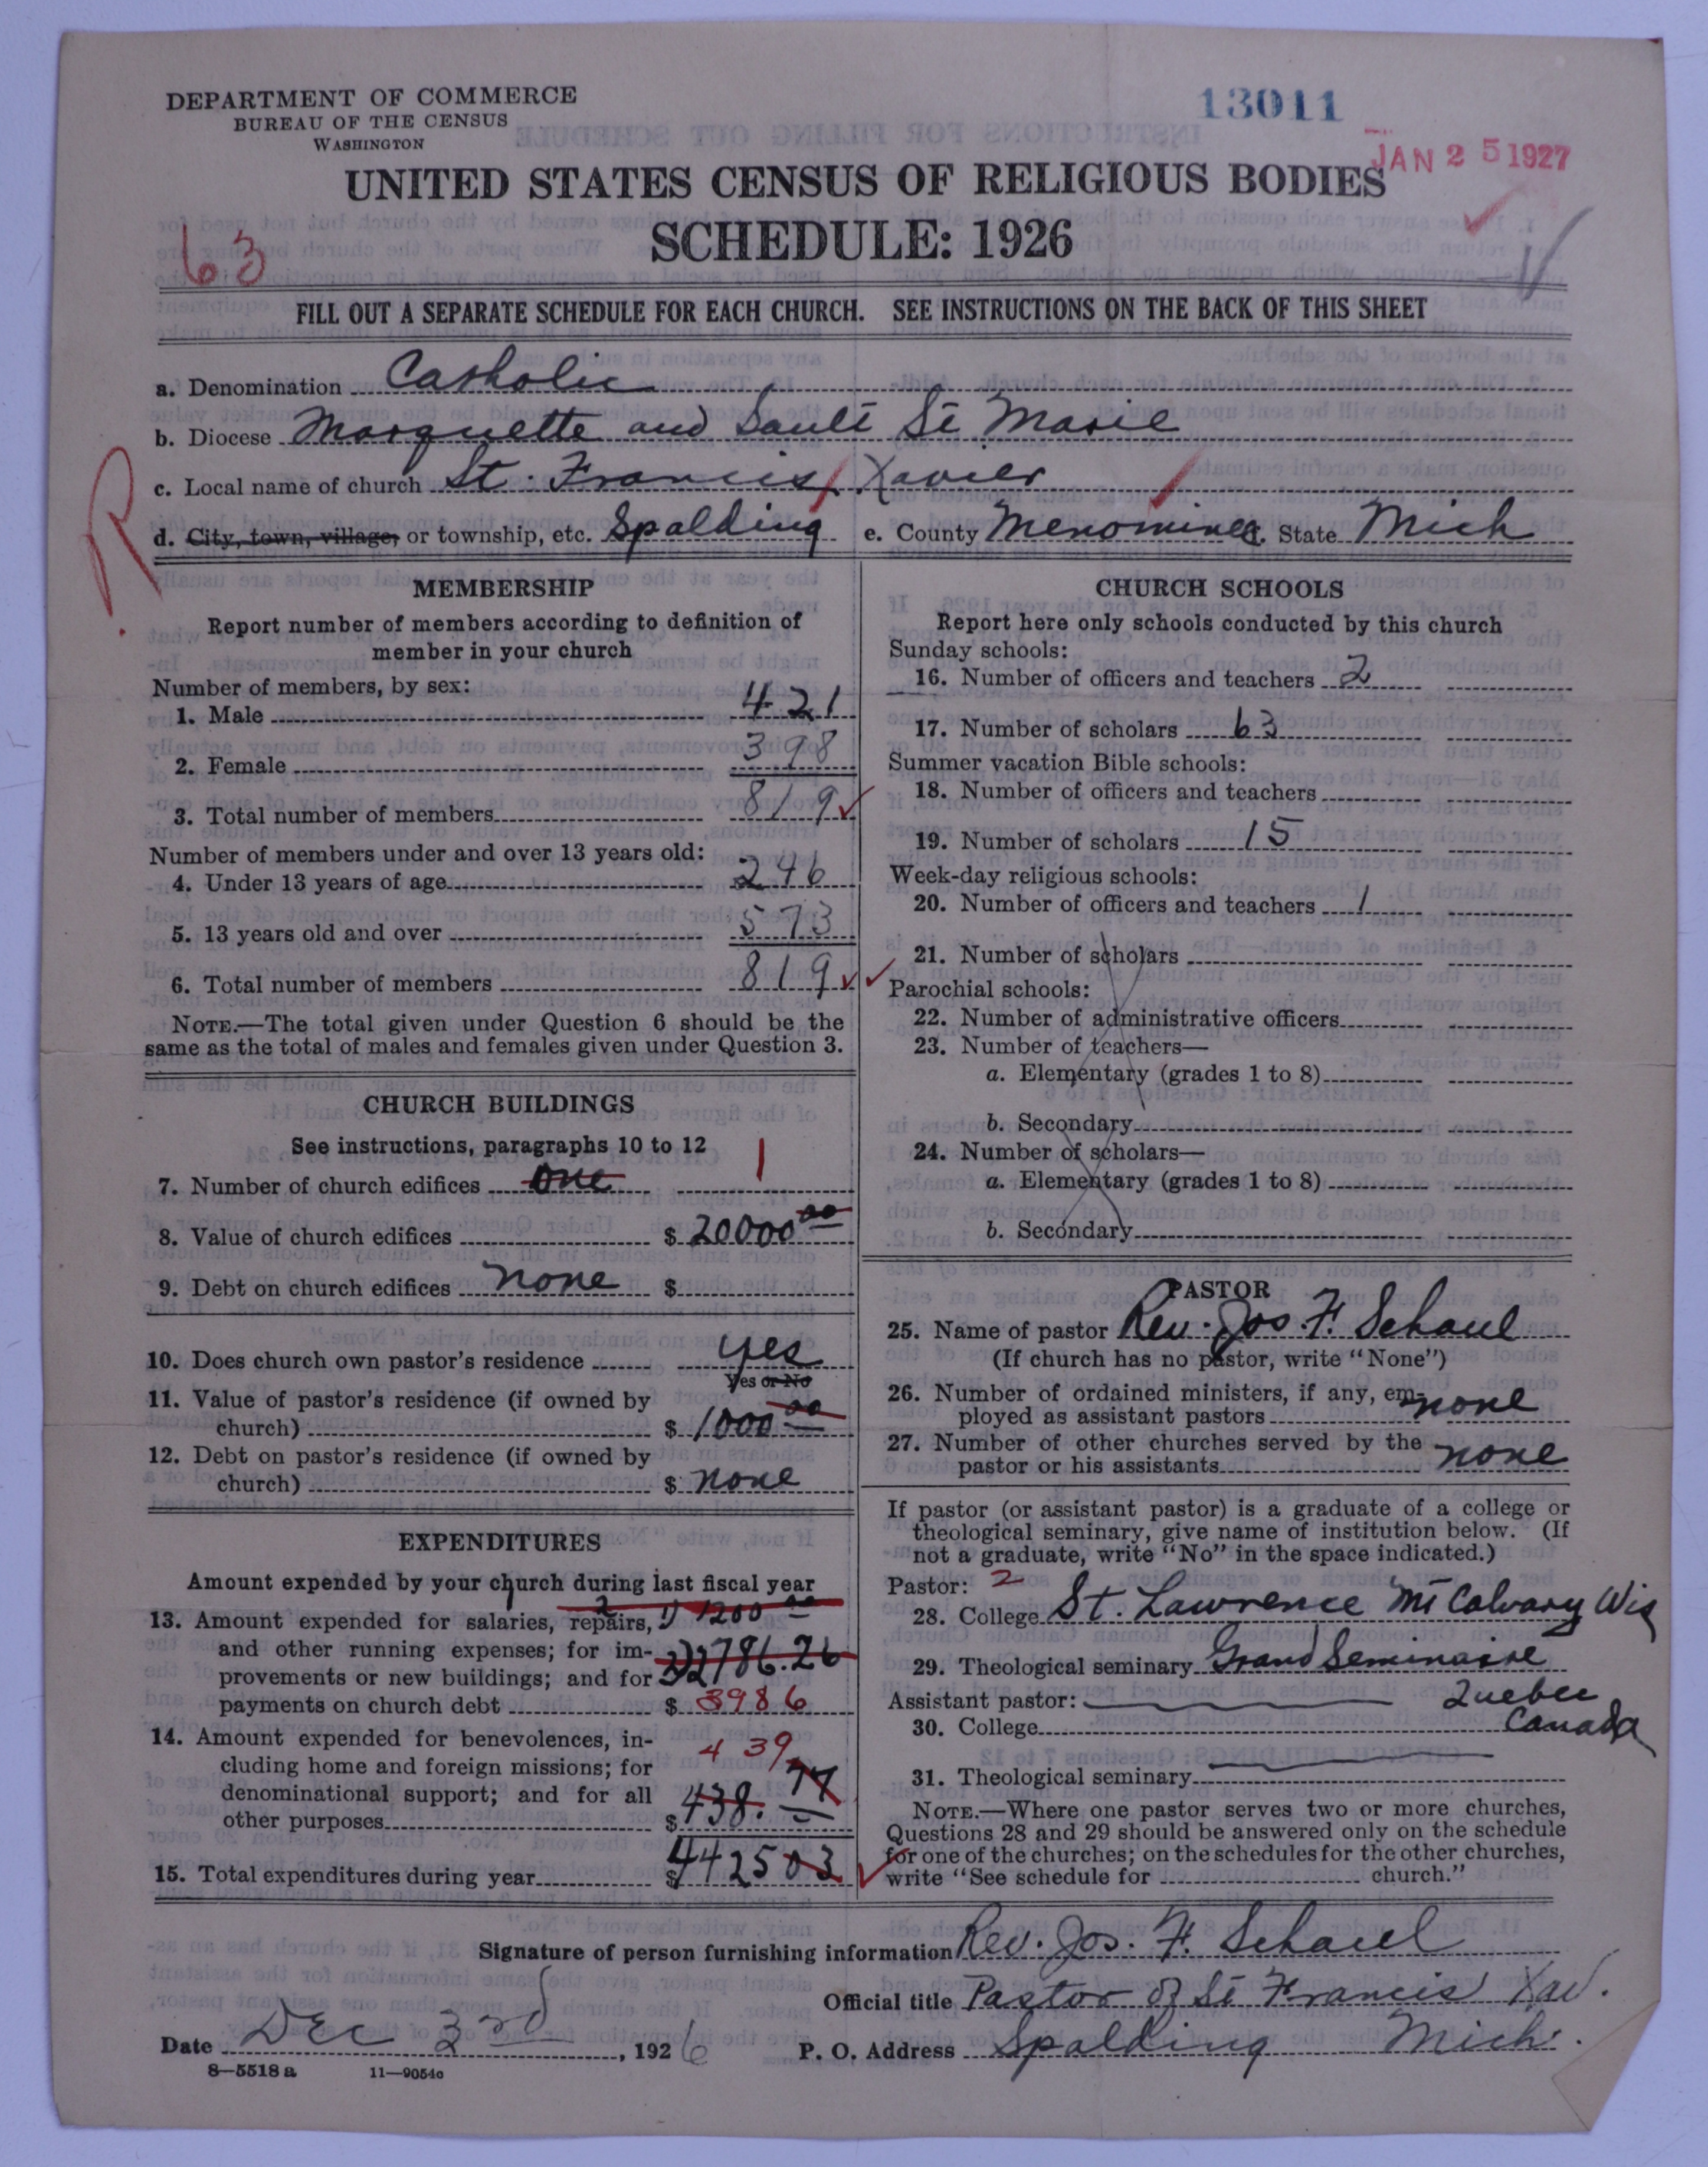 DEPARTMENT OF COMMERCE
BUREAU OF THE CENSUS
WASHINGTON
13011
JAN 25 1927
UNITED STATES CENSUS OF RELIGIOUS BODIES
SCHEDULE: 1926
63
FILL OUT A SEPARATE SCHEDULE FOR EACH CHURCH. SEE INSTRUCTIONS ON THE BACK OF THIS SHEET
a. Denomination Catholic
b. Diocese Marquette and Sault Ste Marie
c. Local name of church St. Francis Xavier
R
d. City, town, village, or township, etc. Spalding e. County Menominee. State Mich
MEMBERSHIP
Report number of members according to definition of
member in your church
Number of members, by sex:
1. Male 421
2. Female 398
3. Total number of members 819
Number of members under and over 13 years old:
4. Under 13 years of age 246
5. 13 years old and over 573
6. Total number of members 819
NOTE.—The total given under Question 6 should be the
same as the total of males and females given under Question 3.
CHURCH BUILDINGS
See instructions, paragraphs 10 to 12
7. Number of church edifices one 1
8. Value of church edifices $ 20000 00
9. Debt on church edifices none $
10. Does church own pastor's residence yes
Yes or No
11. Value of pastor's residence (if owned by
church) $ 1000 00
12. Debt on pastor's residence (if owned by
church) $ none
EXPENDITURES
Amount expended by your church during last fiscal year
13. Amount expended for salaries, repairs, 1) 1200 00
2
and other running expenses; for im-
provements or new buildings; and for 2786.26
payments on church debt $ 3986
14. Amount expended for benevolences, in-
439
cluding home and foreign missions; for
denominational support; and for all
other purposes $ 438. 77
15. Total expenditures during year $ 4425 03
CHURCH SCHOOLS
Report here only schools conducted by this church
Sunday schools:
16. Number of officers and teachers 2
17. Number of scholars 63
Summer vacation Bible schools:
18. Number of officers and teachers
19. Number of scholars 15
Week-day religious schools:
20. Number of officers and teachers 1
21. Number of scholars
Parochial schools:
22. Number of administrative officers
23. Number of teachers—
a. Elementary (grades 1 to 8)
b. Secondary
24. Number of scholars—
a. Elementary (grades 1 to 8)
b. Secondary
PASTOR
25. Name of pastor Rev. Jos F. Schaul
(If church has no pastor, write "None")
26. Number of ordained ministers, if any, em-
ployed as assistant pastors none
27. Number of other churches served by the
pastor or his assistants none
If pastor (or assistant pastor) is a graduate of a college or
theological seminary, give name of institution below. (If
not a graduate, write "No" in the space indicated.)
Pastor: 2
28. College St. Lawrence Mt Calvary Wis
29. Theological seminary Grand Seminaire
Assistant pastor: Quebec
30. College Canada
31. Theological seminary
NOTE.—Where one pastor serves two or more churches,
Questions 28 and 29 should be answered only on the schedule
for one of the churches; on the schedules for the other churches,
write "See schedule for church."
Signature of person furnishing information Rev. Jos. F. Schaul
Official title Pastor of St Francis Xav.
Date Dec 3rd, 1926
P. O. Address Spalding Mich.
8—5518 a 11—9054a